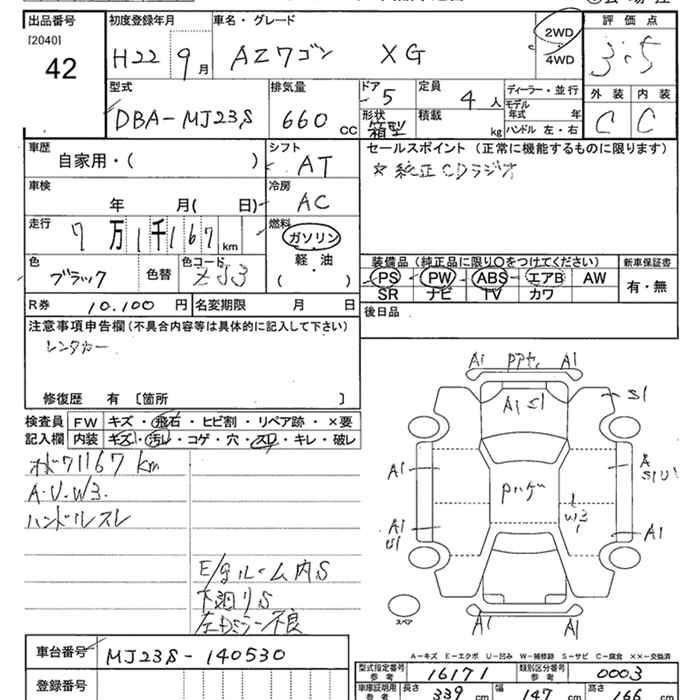 出品番号 初度登録年月 車名・グレード 評価点
[2040]
42
H22 9月 AZワゴン XG 2WD 4WD 3.5
型式 排気量 ドア 定員 ディーラー・並行 外装 内装
DBA-MJ23S 660 CC 5 4 人 モデル年式 年 C C
形状 箱型 積載 kg ハンドル 左・右
車歴 シフト セールスポイント (正常に機能するものに限ります)
自家用・( ) AT ☆純正CDラジオ
車検 冷房
年 月( 日) AC
走行 燃料
7万1千167km ガソリン
軽・油
( )
色 色コード 装備品 (純正品に限り○をつけてください) 新車保証書
ブラック 色替 ZJ3 PS PW ABS エアB AW 有・無
SR ナビ TV カワ
R券 10.100円 名変期限 月 日 後日品
注意事項申告欄 (不具合内容等は具体的に記入して下さい)
レンタカー
修復歴 有 〔箇所 〕
検査員 FW キズ・飛石・ヒビ割・リペア跡・×要
記入欄 内装 キズ・汚レ・コゲ・穴・スレ・キレ・破レ
71167km
A.U.W3.
ハンドルスレ
E/gルーム内S
下廻りS
左Dミラー不良
A1 A1
A1 S1 S1
A1
W3
A1 A1
U1
A1 A1
スペア
A-キズ E-エクボ U-凹み W-補修跡 S-サビ C-腐食 XX-交換済
車台番号 MJ23S-140530
型式指定番号 参考 16171 類別区分番号 参考 0003
登録番号 車庫証明用 参考 長さ 339 cm 幅 147 cm 高さ 166 cm